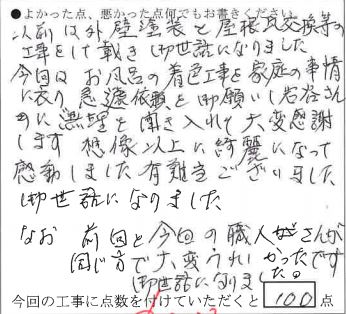 ●よかった点、悪かった点何でもお書きください。
以前は外壁塗装と屋根瓦交換等の
工事をして戴き御世話になりました
今回はお風呂の着色工事を家庭の事情
に依り急遽依頼を御願いし岩谷さん
に無理を聞き入れて大変感謝
します 想像以上に綺麗になって
感動しました 有難うございました
御世話になりました
なお 前回と今回の職人さんが
同じ方で大変うれしかったです
御世話になりました。
今回の工事に点数を付けていただくと 100 点